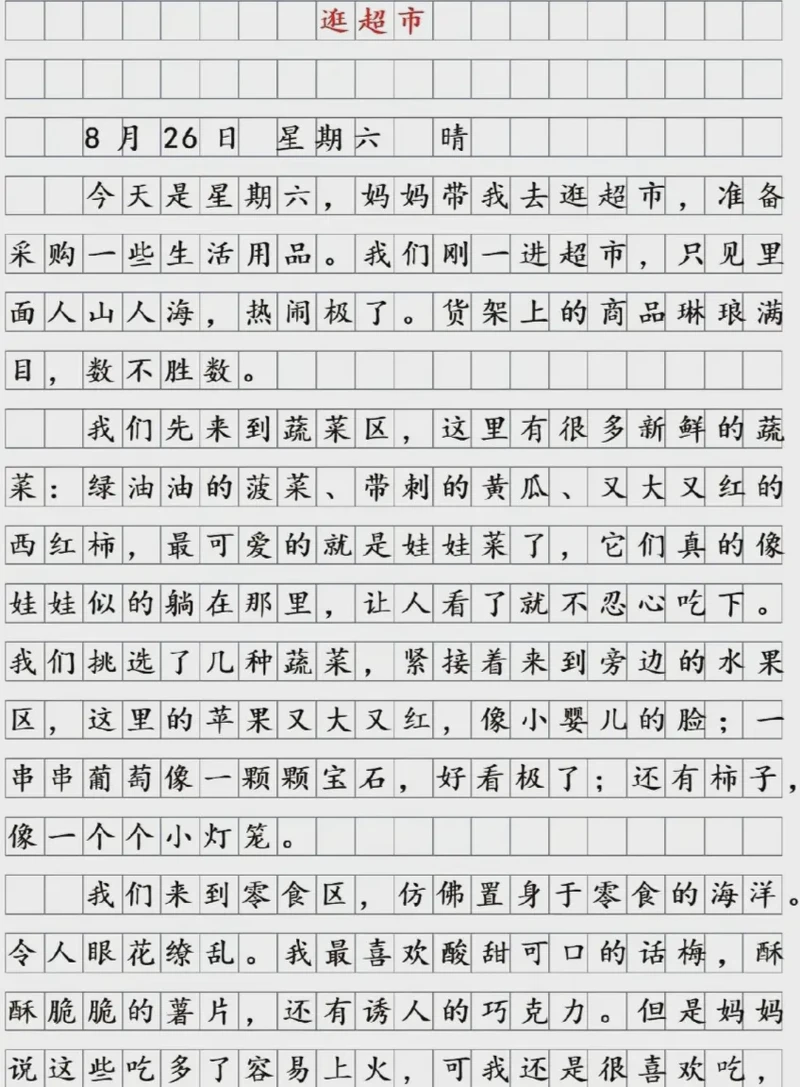 逛超市
8月26日 星期六 晴
今天是星期六，妈妈带我去逛超市，准备
采购一些生活用品。我们刚一进超市，只见里
面人山人海，热闹极了。货架上的商品琳琅满
目，数不胜数。
我们先来到蔬菜区，这里有很多新鲜的蔬
菜：绿油油的菠菜、带刺的黄瓜、又大又红的
西红柿，最可爱的就是娃娃菜了，它们真的像
娃娃似的躺在那里，让人看了就不忍心吃下。
我们挑选了几种蔬菜，紧接着来到旁边的水果
区，这里的苹果又大又红，像小婴儿的脸；一
串串葡萄像一颗颗宝石，好看极了；还有柿子，
像一个个小灯笼。
我们来到零食区，仿佛置身于零食的海洋。
令人眼花缭乱。我最喜欢酸甜可口的话梅，酥
酥脆脆的薯片，还有诱人的巧克力。但是妈妈
说这些吃多了容易上火，可我还是很喜欢吃，